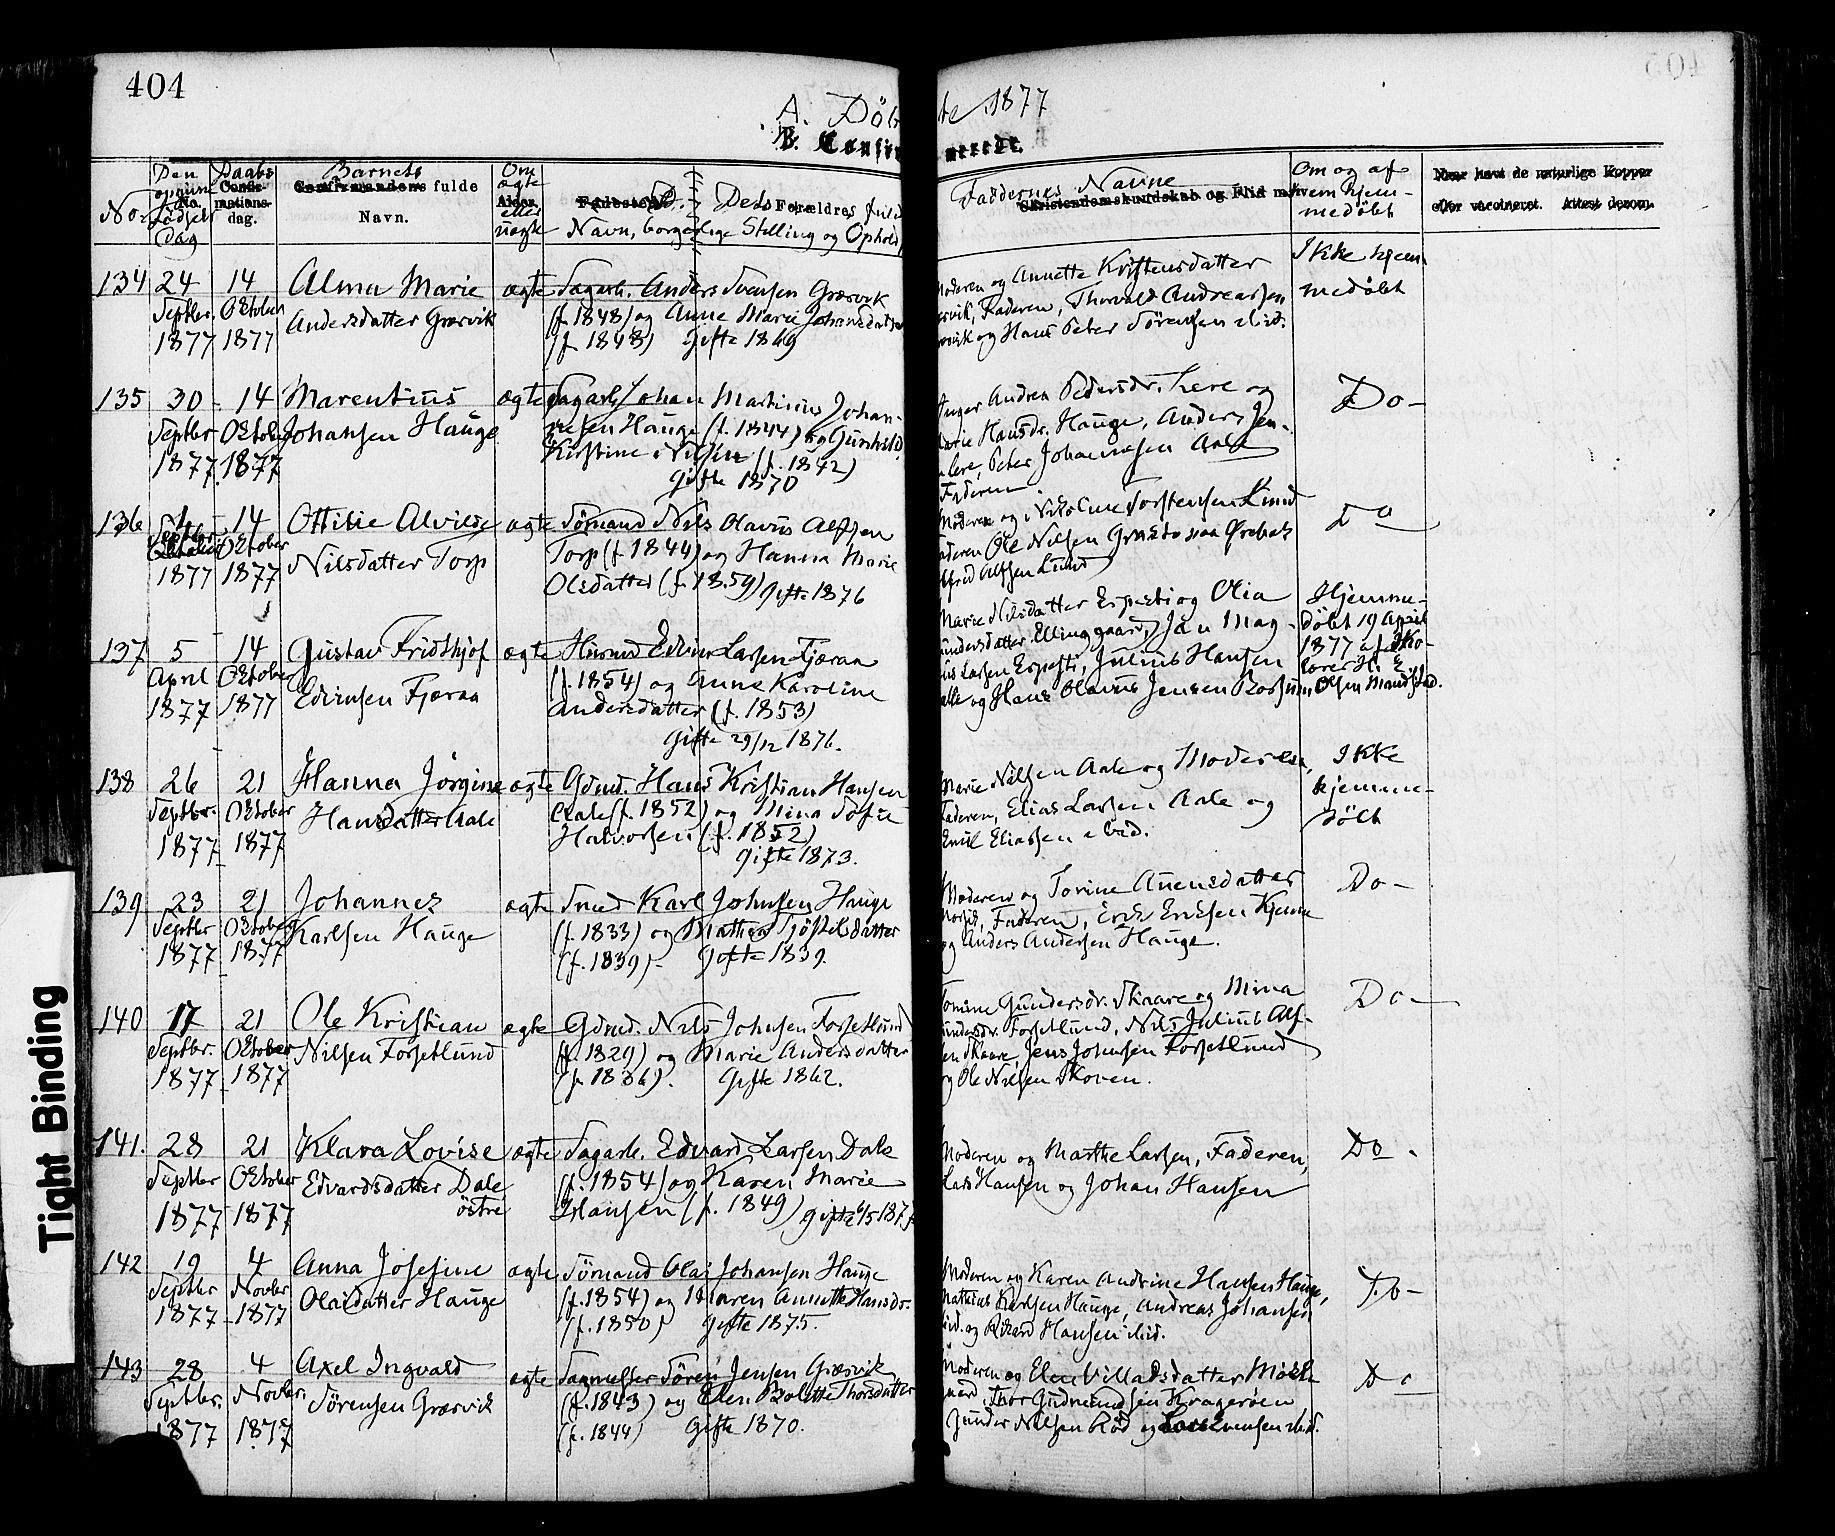 404
A. Døbte 1877
B. Confirmerede.
No.
Den opgivne Fødselsdag
Daabsdag.
Confirmationsdag.
Barnets fulde Navn.
Confirmandens
Om ægte eller uægte
Alder.
Fødested.
Dets Forældres fulde
Navn, borgerlige Stilling og Ophold
Faddernes Navne
Christendomskundskab og Flid m.
Om og af hvem hjemmedøbt
Naar havt de naturlige Kopper
eller vaccineret. Attest derom.
134 24 Septbr. 1877
14 Oktober 1877
Alma Marie
Andersdatter Græsvik
ægte
Sagarb. Anders Svensen Græsvik
(f. 1848) og Anne Marie Johansdatter
(f. 1848) Gifte 1869
Moderen og Annette Kristensdatter
Græsvik, Faderen, Thorvald Andreassen
Græsvik og Hans Peter Sørensen ibid.
Ikke hjemmedøbt
135 30 Septbr 1877
14 Oktober 1877
Marentius
Johansen Hauge
ægte
Sagarb. Johan Martinius Johannesen Hauge (f. 1844) og Gunhild
Kristine Nilsen (f. 1842)
Gifte 1870
Inger Andrea Pedersdr. Lere og
Marie Hansdr. Hauge, Anders Jen-
Lere, Peter Johannesen Aale
Faderen
Do-
136 Septbr 1877
14 Oktober 1877
Ottilie Alvilde
Nilsdatter Torp
ægte
Sømand Nils Olavus Alfsen
Torp (f. 1844) og Hanna Marie
Olsdatter (f. 1859) Gifte 1876
Moderen og Nikoline Torstensen Lund
Faderen Ole Nilsen
Alfred Alfsen Lund
Do
137 5 April 1877
14 Oktober 1877
Gustav Fridthjof
Edvinsen Fjæraa
ægte
Husmd Edvin Larsen Fjæraa
(f. 1854) og Anne Karoline
Andersdatter (f. 1853)
Gifte 29/12 1876.
Marie Nilsdatter Enpesti og Olia
Gundersdatter Ellinggaard, Jan Mag-
nus Larsen Enpesti, Julius Hansen
og Hans Olavus Jensen Rossum
Hjemmedøbt 19 April
1877 af Skolærer H. E.
Olsen Mandstad.
138 26 Septbr. 1877
21 Oktober 1877
Hanna Jørgine
Hansdatter Aale
ægte
Gdmd. Hans Kristian Hansen
Aale (f. 1852) og Mina Sofie
Halvorsen (f. 1852)
Gifte 1873.
Marie Nilsen Aale og Moderen,
Faderen, Elias Larsen Aale og
Emil Eliassen ibid.
Ikke hjemmedøbt
139 23 Septbr 1877
21 Oktober 1877
Johannes
Karlsen Hauge
ægte
Smed Karl Johnsen Hauge
(f. 1833) og Mathea Tjøstelsdatter
(f. 1839) - Gifte 1839.
Moderen og Torine Auensdatter
Faderen, Erik Eriksen Kjenne
og Anders Andersen Hauge.
Do-
140 17 Septbr. 1877
21 Oktober 1877
Ole Kristian
Nilsen Forsetlund
ægte
Gdmd. Nils Johnsen Forsetlund
(f. 1829) og Marie Andersdatter
(f. 1836). Gifte 1862.
Tomine Gundersdr. Skaare og Mina
Gundersdr. Forsetlund, Nils Julius Alf-
sen Skaare, Jens Johnsen Forsetlund
og Ole Nilsen Skoven.
Do-
141. 28 Septbr 1877
21 Oktober 1877
Klara Lovise
Edvardsdatter Dale
östre
ægte
Sagarb. Edvard Larsen Dale
(f. 1854) og Karen Marie
Hansen (f. 1849) Gifte
Moderen og Marthe Larsen, Faderen,
Lars Hansen og Johan Hansen
Do.
142 19 Septbr 1877
4 Novbr 1877
Anna Josefine
Olaidatter Hauge
ægte
Sømand Olai Johansen Hauge
(f. 1854) og Maren Annette Hansdr.
(f. 1850) Gifte 1875.
Moderen og Karen Andrine Hansen Hauge,
Mathias Karlsen Hauge, Andreas Johansen
ibid. og Rikard Hansen ibid.
Do-
143 28 Septbr. 1877
4 Novbr. 1877
Axel Ingvald
Sørensen Græsvik
ægte
Sagmester Søren Jensen Græsvik
(f. 1843) og Elen Bolette Thorsdatter
(f. 1844) Gifte 1870.
Moderen og Elen Villadsdatter Mokle
gaard, Thor Gudmundsen Kragerøen
Gunder Nilsen Rød og Lars Evensen ibid.
Do
Tight Binding